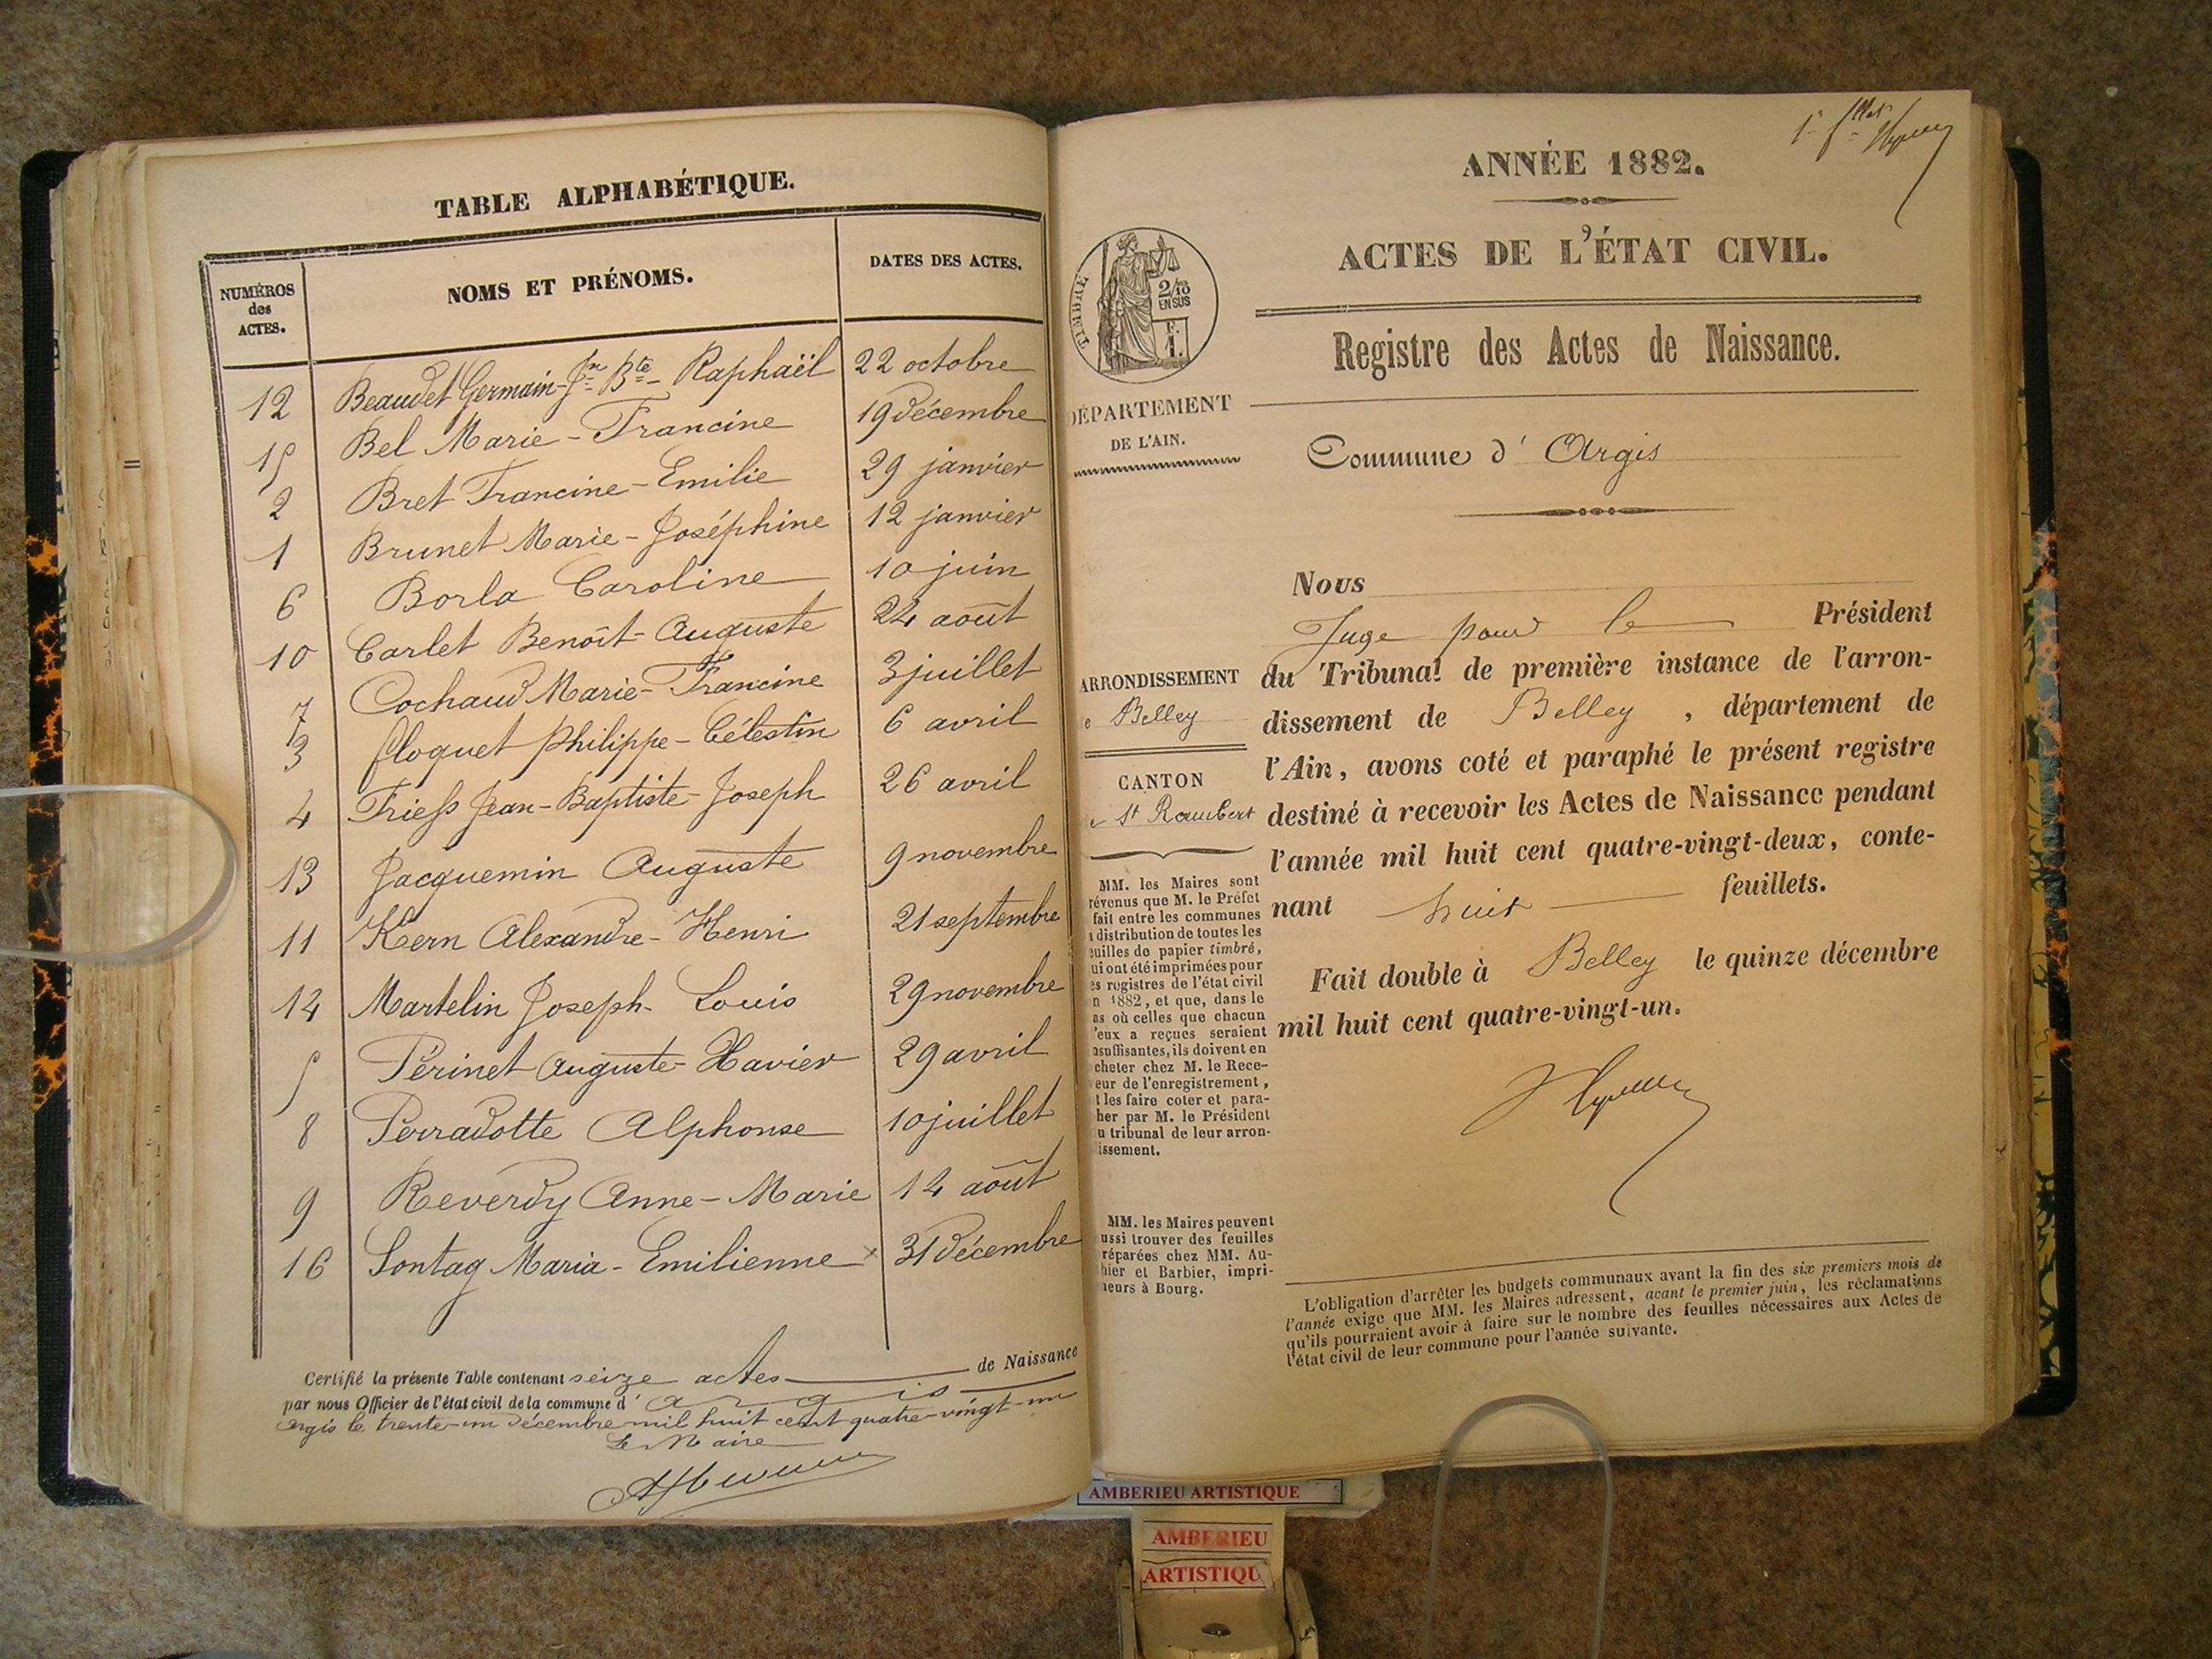 TABLE ALPHABÉTIQUE.
NUMÉROS des ACTES.
NOMS ET PRÉNOMS.
DATES DES ACTES.
12 Beaudet Germain-Jn Bte- Raphaël 22 octobre
15 Bel Marie-Francine 19 décembre
2 Bret Francine-Emilie 29 janvier
1 Brunet Marie-Joséphine 12 janvier
6 Borla Caroline 10 juin
10 Carlet Benoît-Auguste 24 août
7 Cochaud Marie-Francine 3 juillet
3 Cloquet Philippe-Célestin 6 avril
4 Friess Jean-Baptiste-Joseph 26 avril
13 Jacquemin Auguste 9 novembre
11 Kern Alexandre-Henri 21 septembre
14 Martelin Joseph-Louis 29 novembre
5 Périnet Auguste-Xavier 29 avril
8 Perradotte Alphonse 10 juillet
9 Reverdy Anne-Marie 14 août
16 Sontag Maria-Emilienne x 31 décembre
Certifié la présente Table contenant seize actes de Naissance
par nous Officier de l'état civil de la commune d'Argis
Argis le trente-un décembre mil huit cent quatre-vingt-un
Le Maire
ANNÉE 1882.
ACTES DE L'ÉTAT CIVIL.
TIMBRE
2/10
EN SUS
F.
1.
Registre des Actes de Naissance.
DÉPARTEMENT
DE L'AIN.
Commune d'Argis
Nous
Juge pour le Président
du Tribunal de première instance de l'arron-
dissement de Belley, département de
l'Ain, avons coté et paraphé le présent registre
destiné à recevoir les Actes de Naissance pendant
l'année mil huit cent quatre-vingt-deux, conte-
nant huit feuillets.
Fait double à Belley le quinze décembre
mil huit cent quatre-vingt-un.
ARRONDISSEMENT
e Belley
CANTON
e St Rambert
MM. les Maires sont
révenus que M. le Préfet
fait entre les communes
a distribution de toutes les
euilles de papier timbré,
ui ont été imprimées pour
es registres de l'état civil
n 1882, et que, dans le
as où celles que chacun
'eux a reçues seraient
nsuffisantes, ils doivent en
cheter chez M. le Rece-
eur de l'enregistrement,
t les faire coter et para-
her par M. le Président
u tribunal de leur arron-
issement.
MM. les Maires peuvent
ussi trouver des feuilles
réparées chez MM. Au-
hier et Barbier, impri-
eurs à Bourg.
L'obligation d'arrêter les budgets communaux avant la fin des six premiers mois de
l'année exige que MM. les Maires adressent, avant le premier juin, les réclamations
qu'ils pourraient avoir à faire sur le nombre des feuilles nécessaires aux Actes de
l'état civil de leur commune pour l'année suivante.
AMBERIEU ARTISTIQUE
AMBERIEU
ARTISTIQU